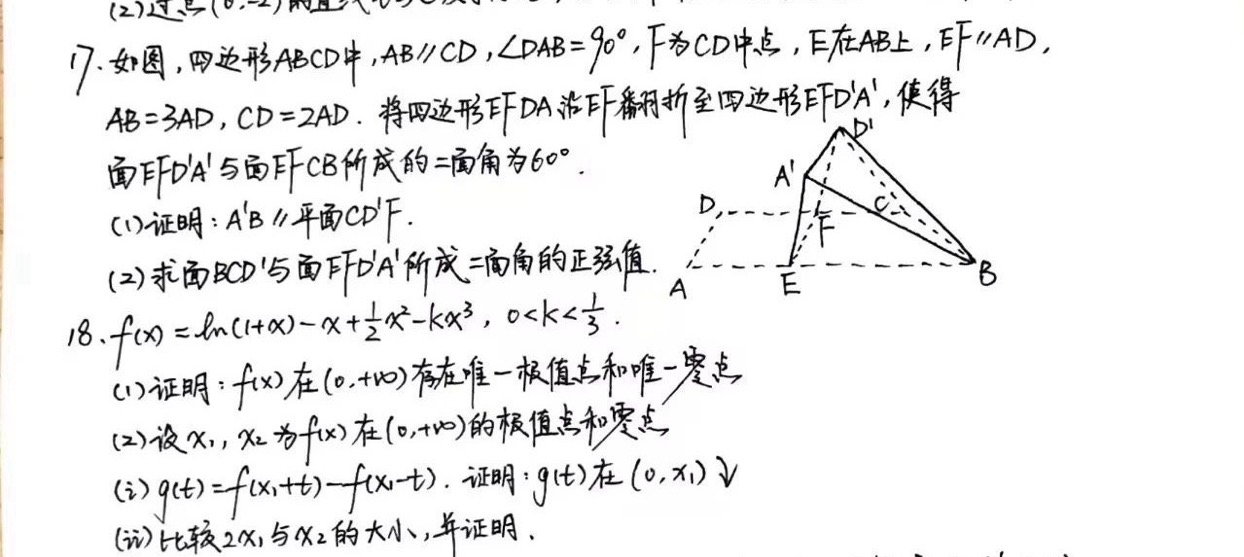 (2)过点(0,-2)的直线
17.如图,四边形ABCD中,AB//CD,∠DAB=90°,F为CD中点,E在AB上,EF//AD,
AB=3AD,CD=2AD.将四边形EFDA沿EF翻折至四边形EFD'A',使得
面EFD'A'与面EFCB所成的二面角为60°.
(1)证明:A'B//平面CD'F.
(2)求面BCD'与面EFD'A'所成二面角的正弦值.
D'
A'
D
C
F
A
E
B
18.f(x)=ln(1+x)-x+½x²-kx³,0<k<⅓.
(1)证明:f(x)在(0,+∞)存在唯一极值点和唯一零点
(2)设x₁,x₂为f(x)在(0,+∞)的极值点和零点
(i)g(t)=f(x₁+t)-f(x₁-t).证明:g(t)在(0,x₁)↓
(ii)比较2x₁与x₂的大小,并证明.